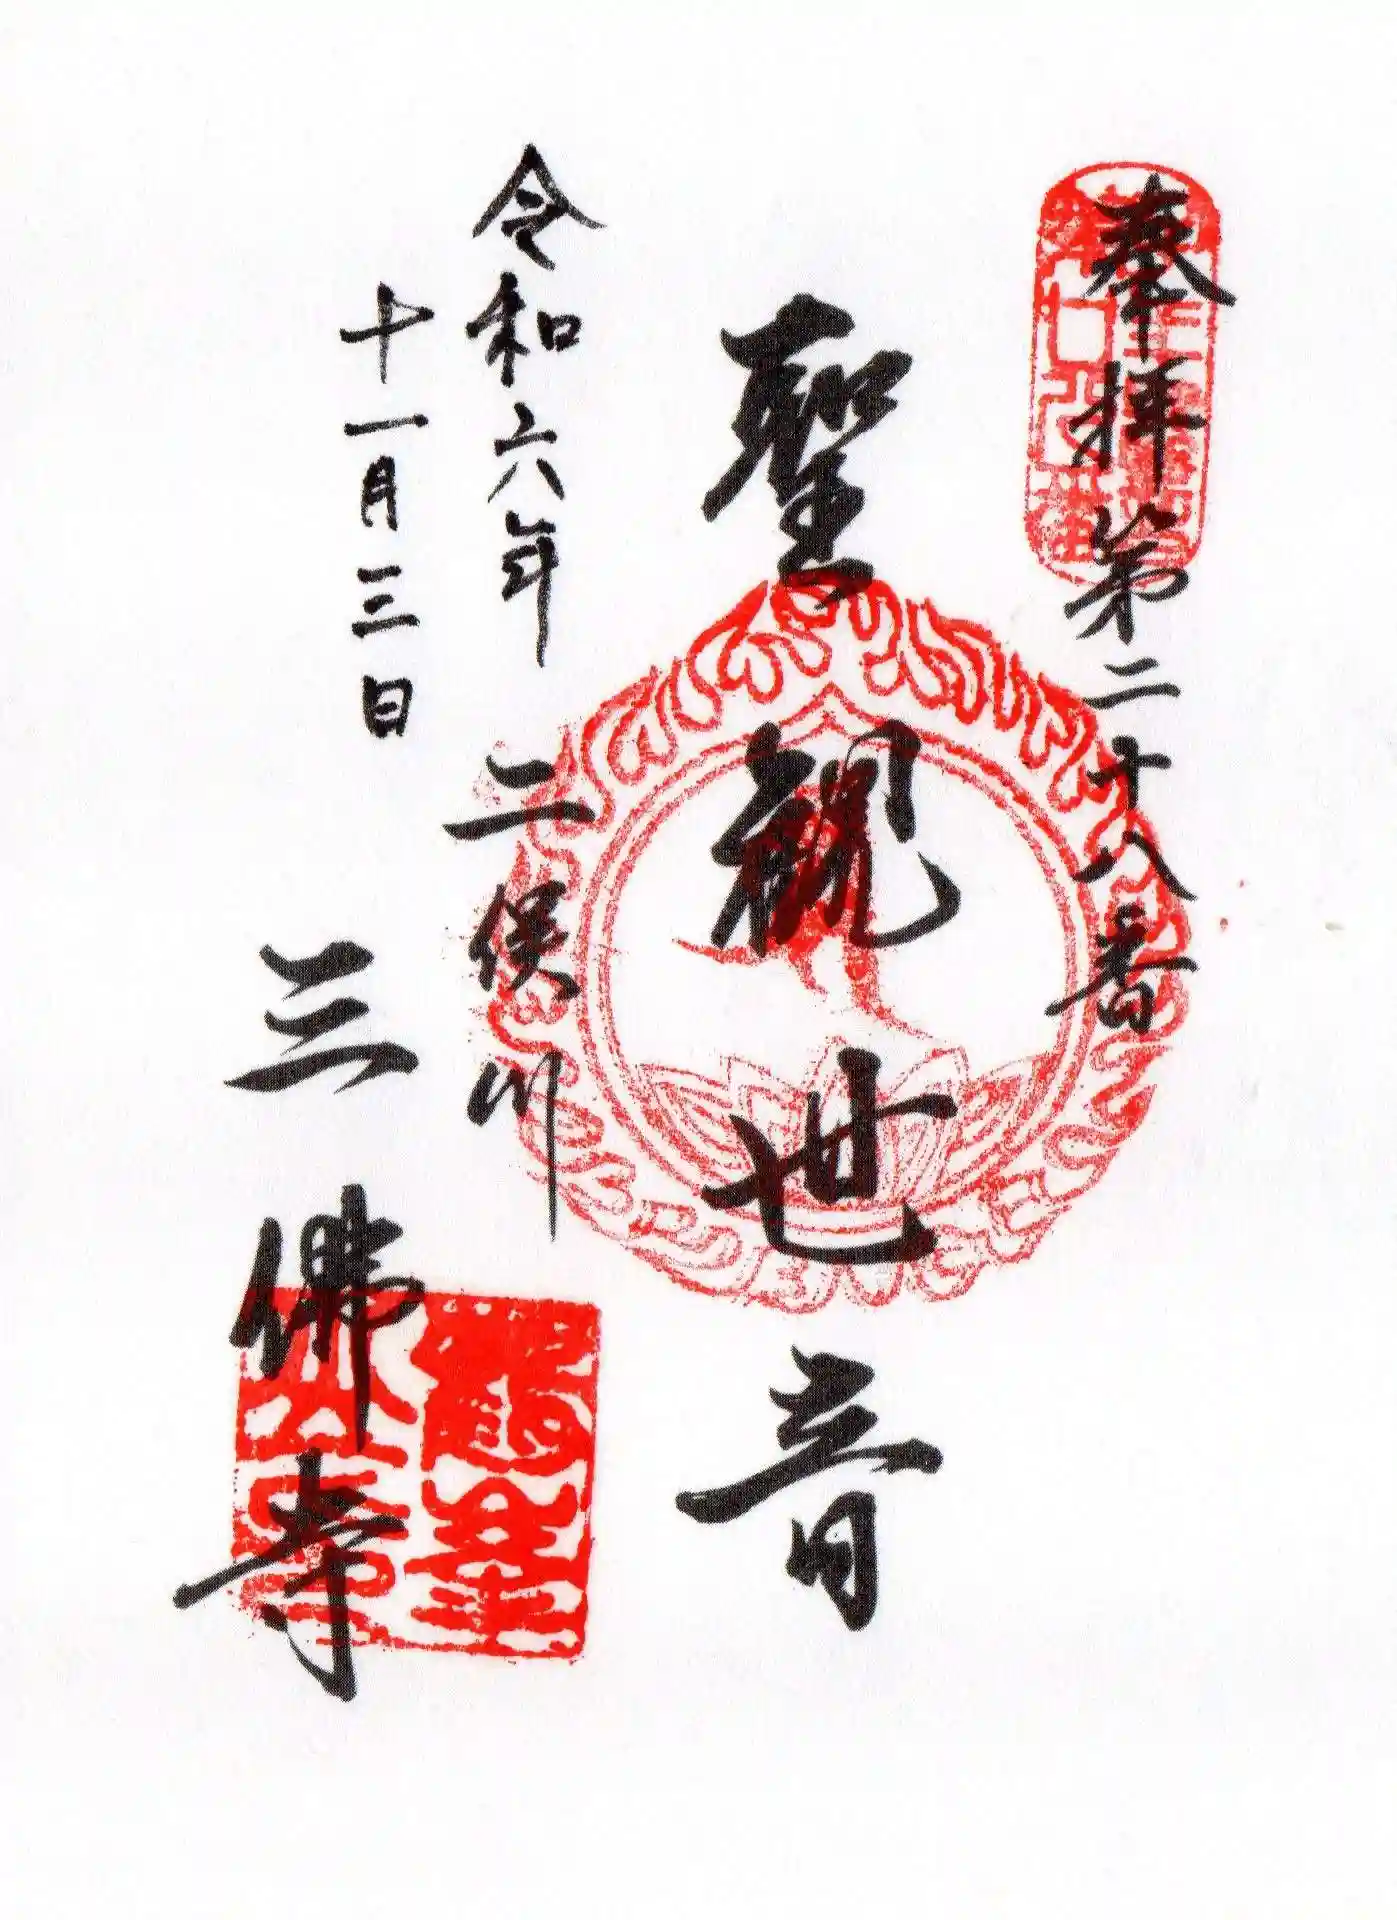 奉拝第二十八番
聖観世音
二俣川
三佛寺
令和六年
十一月三日